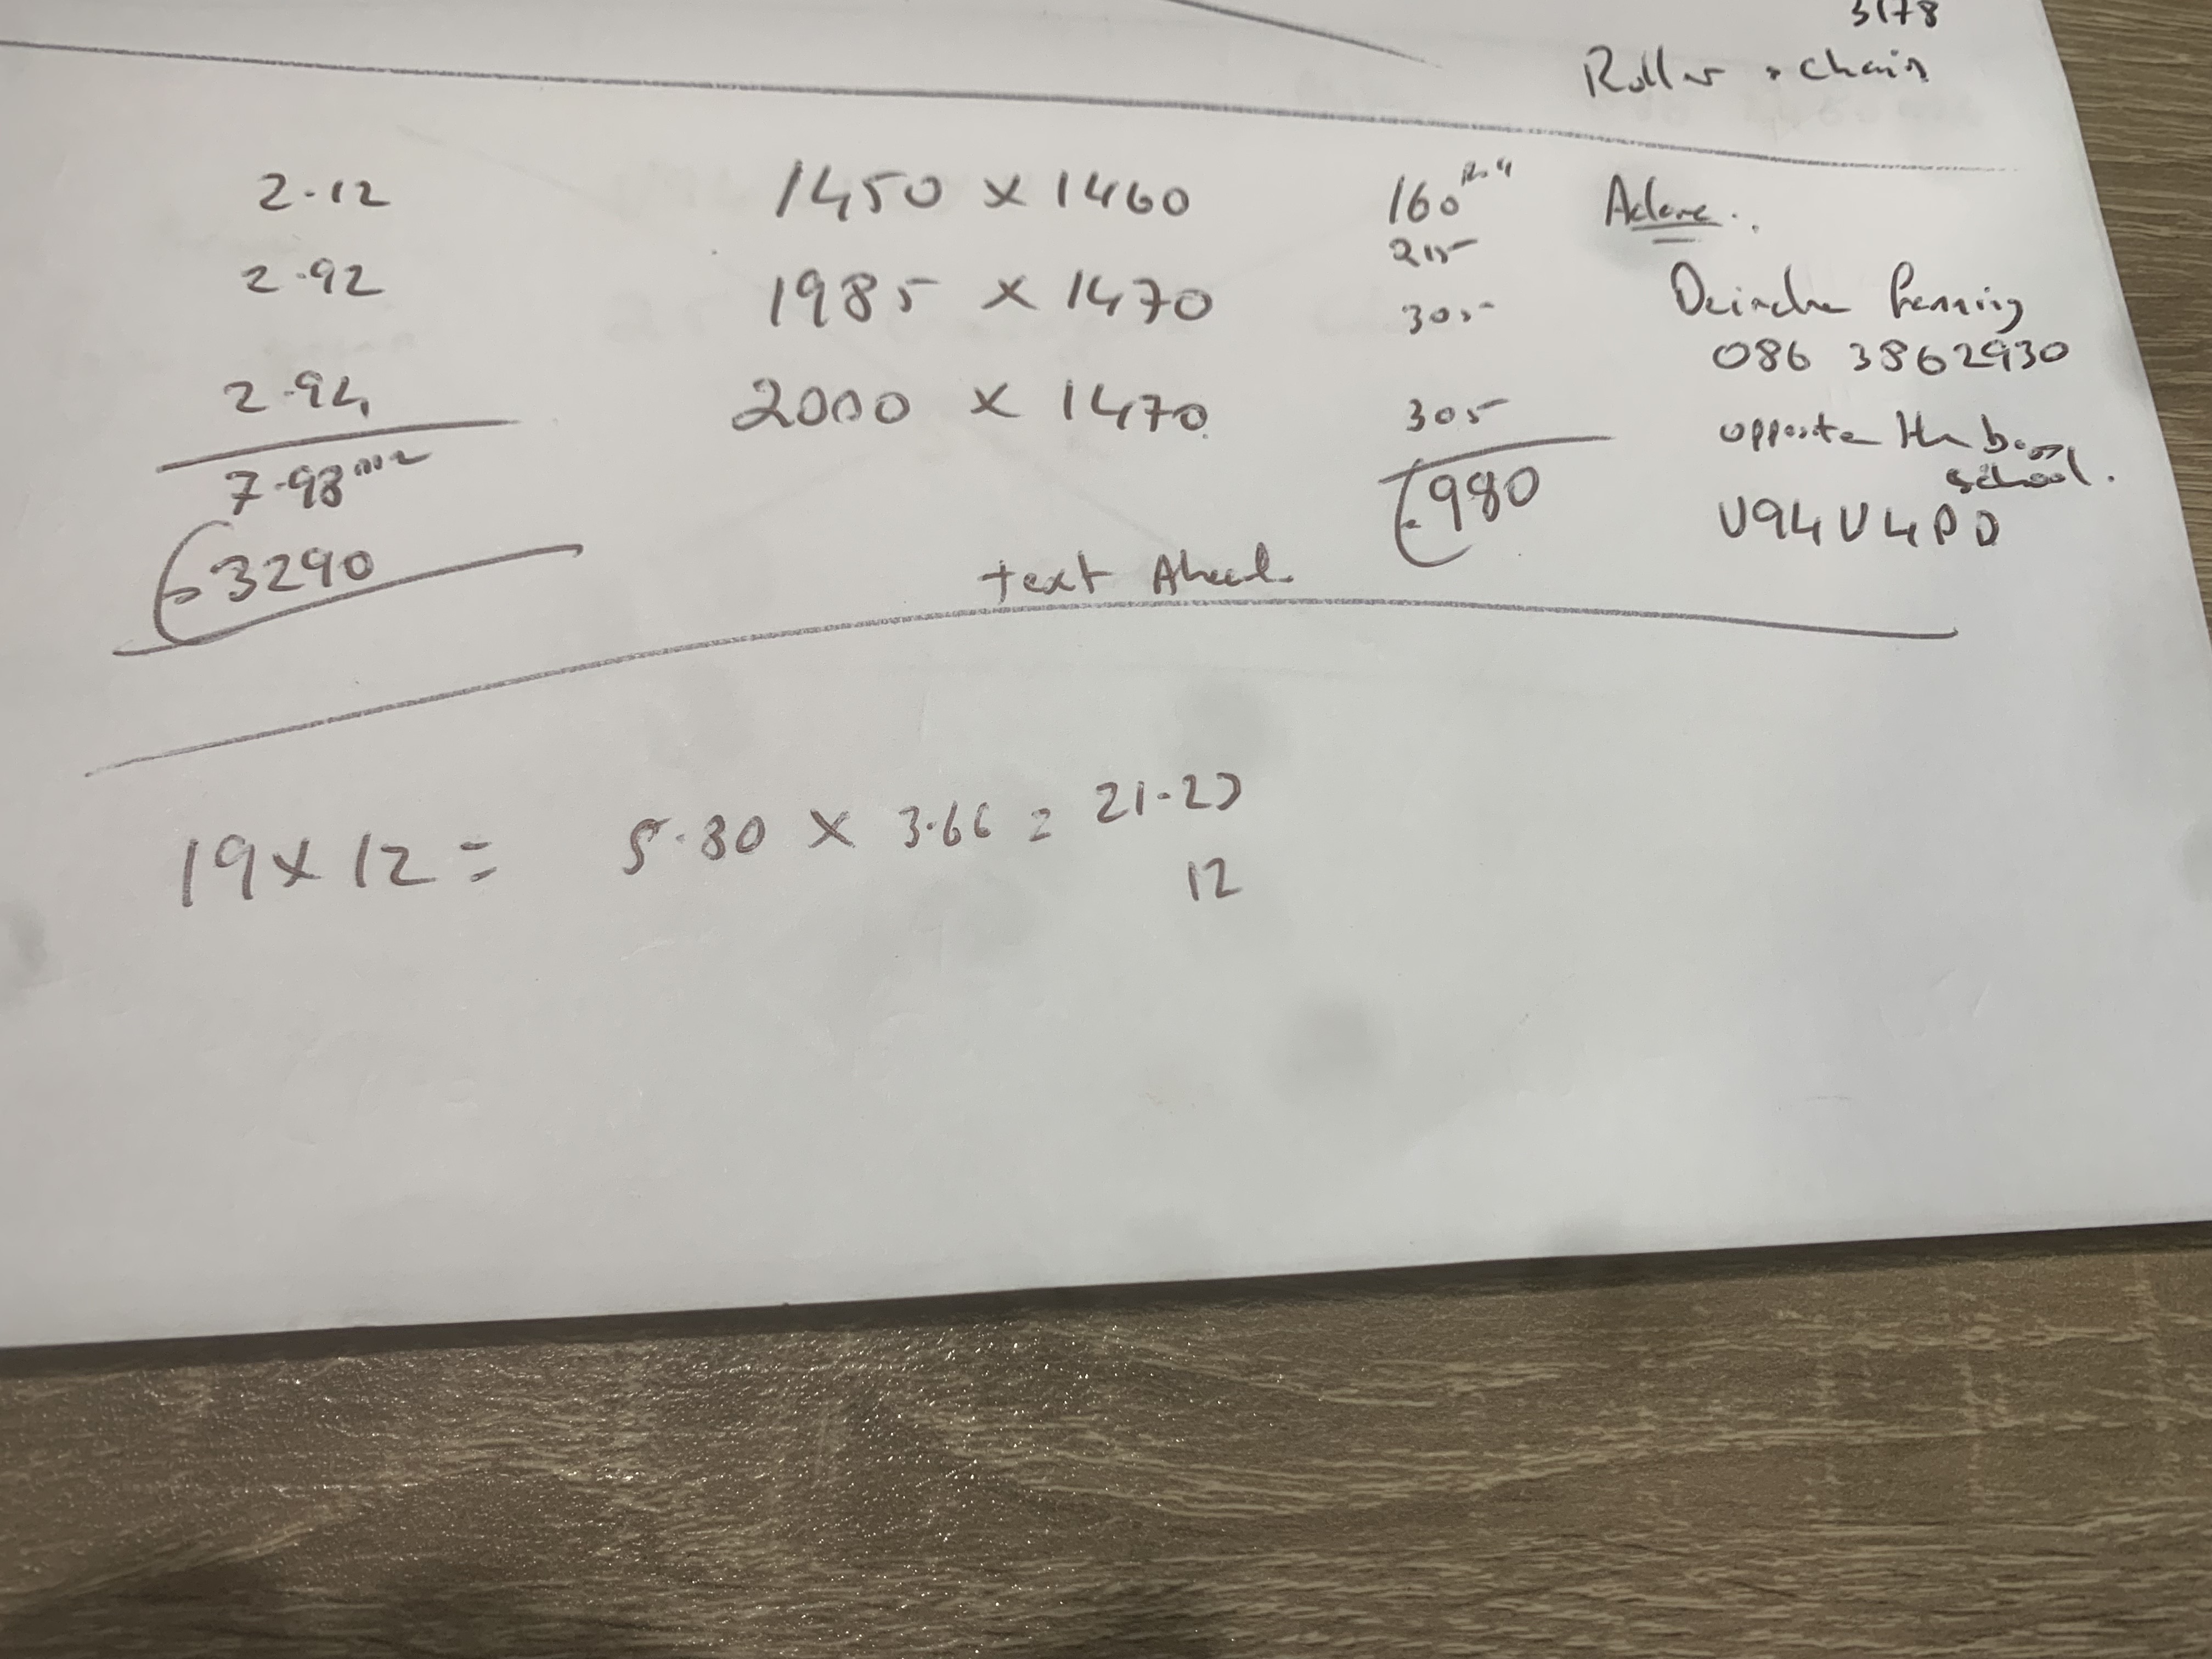 3178
Roller + chain
2.12 1450 x 1460 160
Aclare.
215
2.92 1985 x 1470 305
086 3862930
2.94 2000 x 1470 305
opposite the boys
school.
7.98 m2 980
U94U4PD
3290
text Ahead.
19 x 12 = 5.80 x 3.66 = 21.23
12